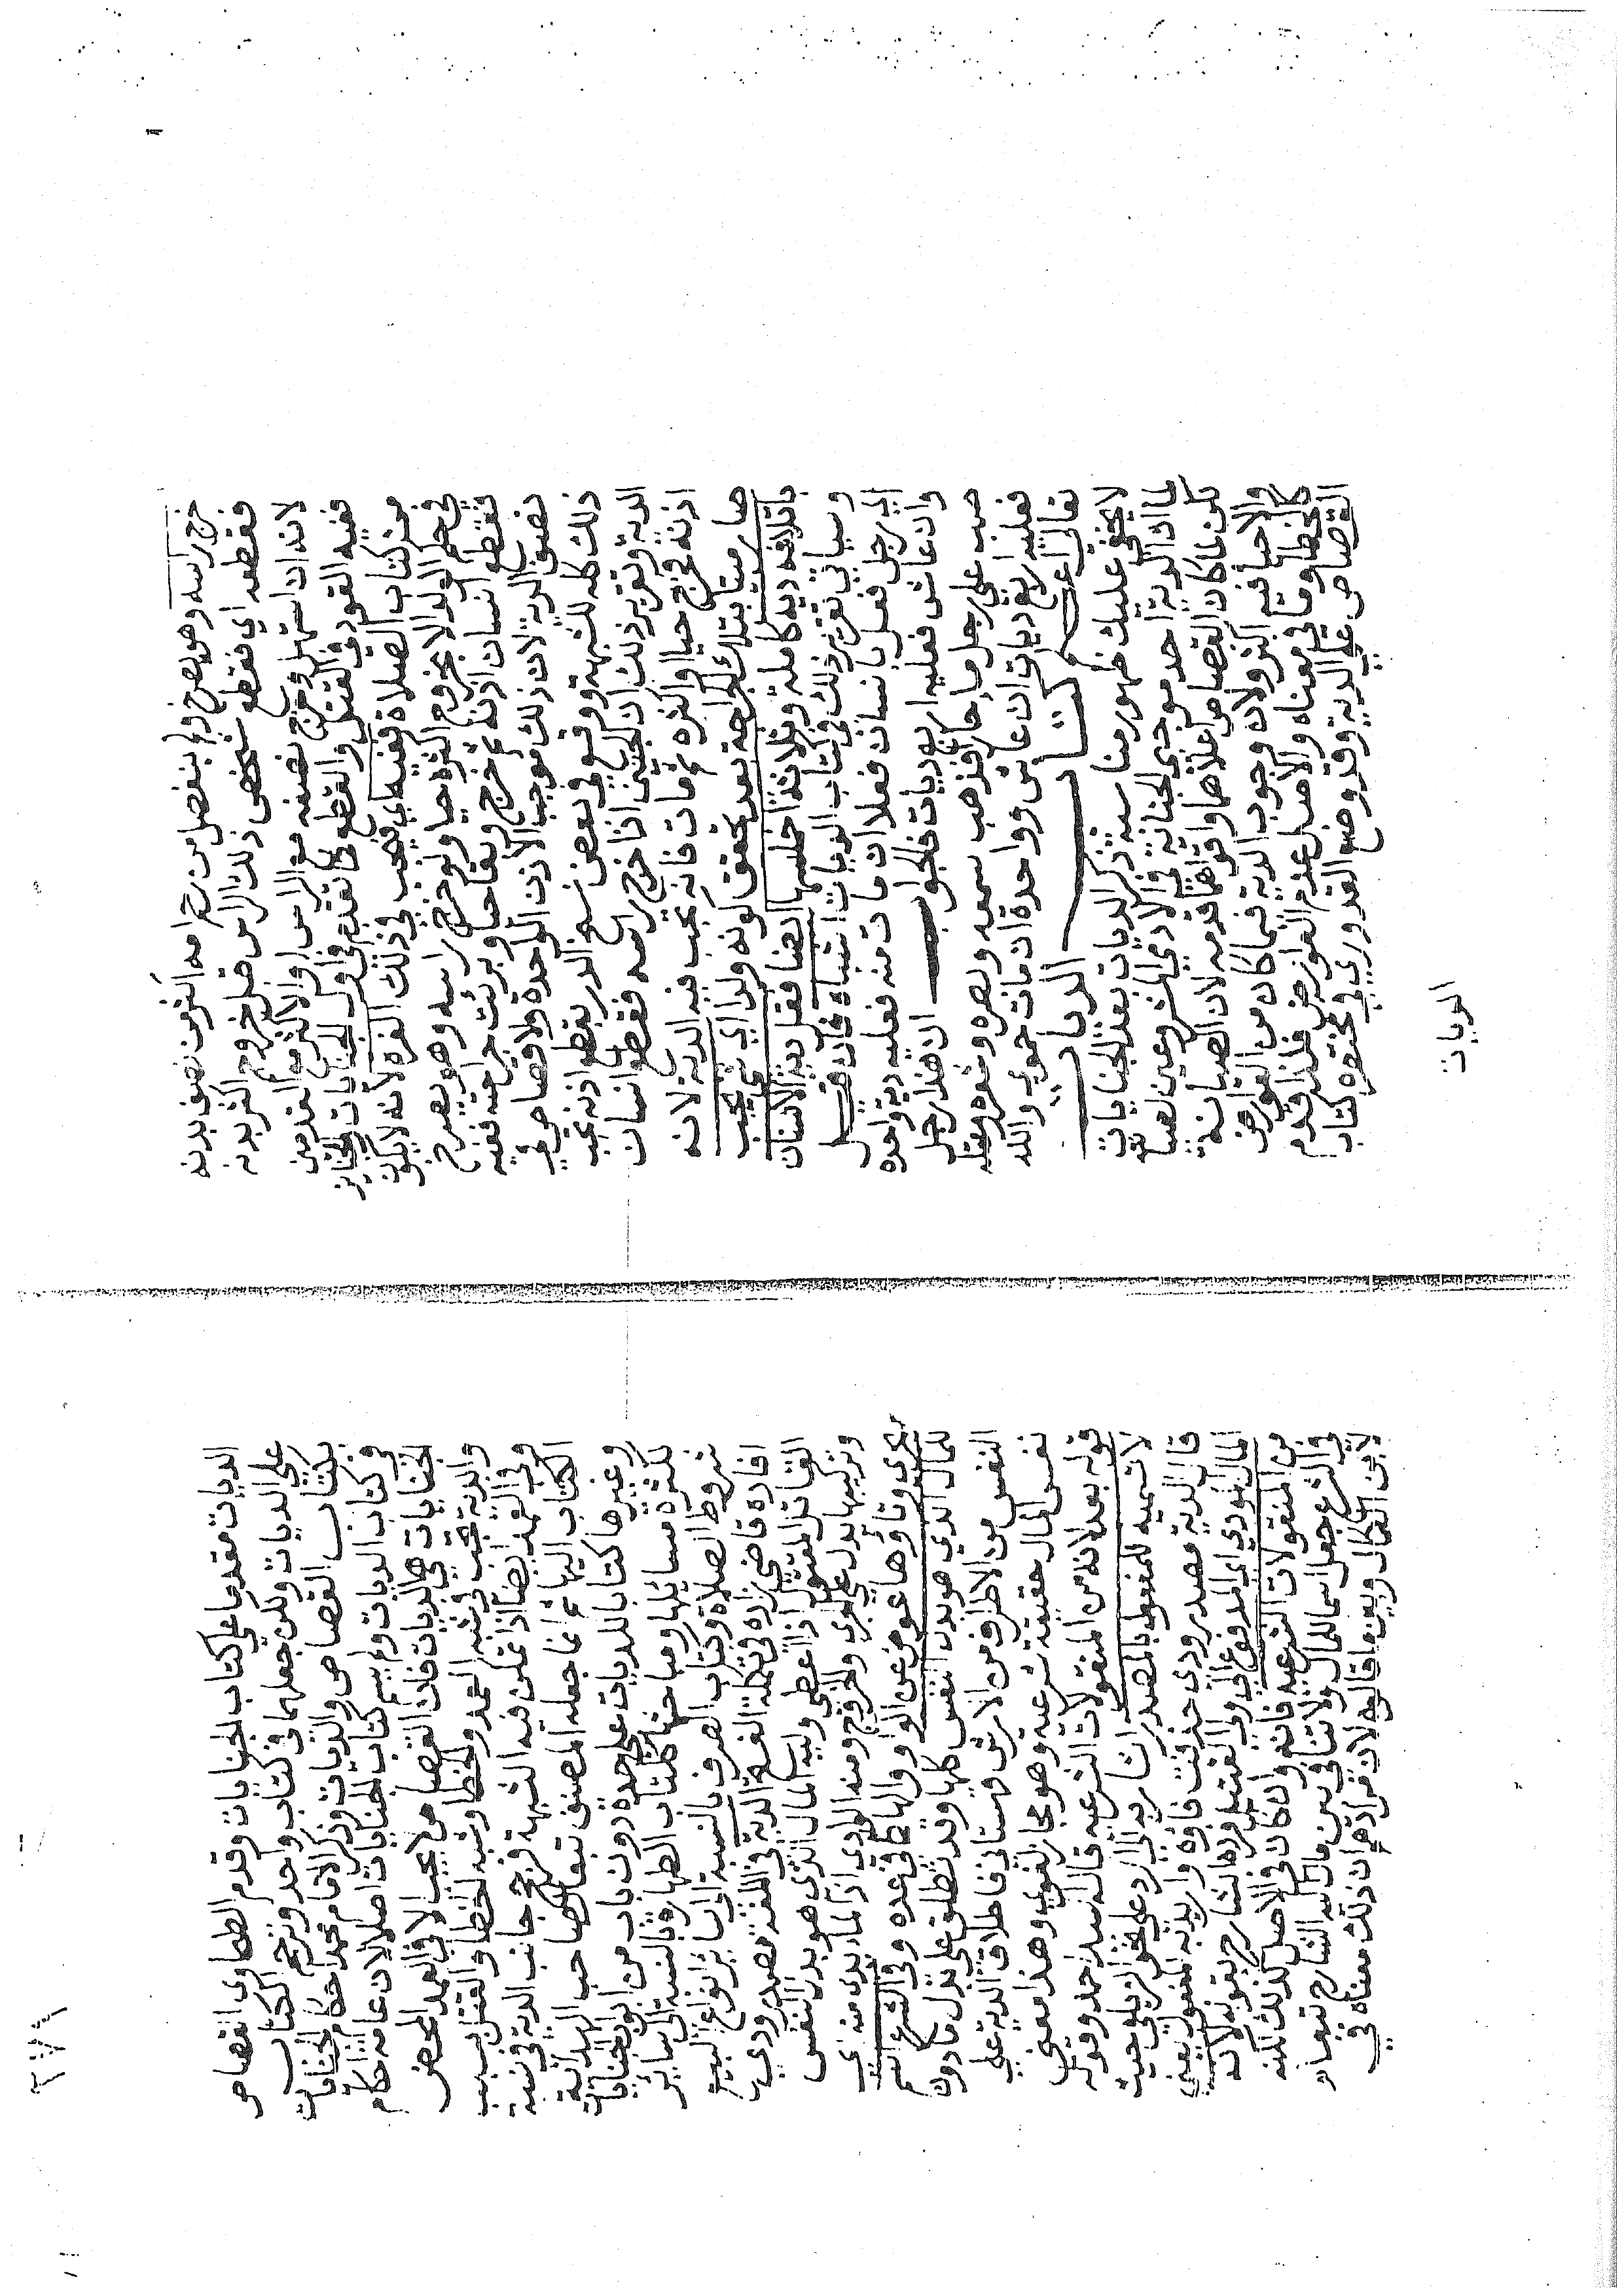 خرج راسه وهو يصرخ ولم ينفصل من رحم امه اكثر من نصف بدنه
فقطعه اي فقطع شخص ذلك الراس قبل خروج اكثر بدنه
لانه ان استهل وخرج نصفه مع الراس او الاكثر مع القدمين
ففيه القود في القتل والقطع كما تقدم في اول الجنايات والجنائز
من كتاب الصلاة ففيه اي فيجب في ذلك الغرة لانه لا يكون
في حكم الولد الا بخروج اكثره حيا ولو خرج راسه وهو يصرخ
فقطع انسان اذنه ثم خرج وبقا حيا وبرئت جراحته ففيه
نصف الدية لان ذلك موجب الاذن الواحدة ولا قصاص في
ذلك كله للشبهة ووقع في بعض نسخ الدر بقطع اذنه يجب
الدية وتقرير ذلك ان الجنين اذا خرج راسه فقطع انسان
اذنه فخرج حيا او اكثره ثم مات فانه يجب فيه الدية لانه
صار ميتا بتلك الجراحة بعد تحقق كونه ولدا اي شي يجب
باتلافه دية كاملة وثلاثة اخماسها ايضا فقل دية الاسنان
وسياتي تقرير ذلك في كتاب الديات اشباه فان قيل
اي رجل فعل بانسان فعلا ان مات منه فعليه دية واحدة
وان عاش فعليه اربع ديات فالجواب ان هذا رجل
صب على رجل ماء حارا فذهب سمعه وبصره وشعره وعقله
فعليه اربع ديات ان عاش وواحدة ان مات حموي والله
تعالى اعلم كتاب الديات
لا يخفى عليك ظهور مناسبة ذكر الديات بعد الجنايات
لما ان الدية احد موجبي الجناية في الادمي المشروعين لصيانته
لكن لما كان القصاص اعلاهما واقواهما قدمه لان الصيانة
والاحيا فيه اكثر ولان وجوب الدية فيما كان من العوارض
كالخطا وما في معناه والاصل عدم العوارض فلذا قدم
القصاص على الدية وقد وضع القدوري في مختصره كتاب
الديات
٢٧٨
الديات مقدما على كتاب الجنايات وقدم الطحاوي القصاص
على الديات ولكن جعلهما في كتاب واحد وترجم الكتاب
بكتاب القصاص والديات وذكر الامام محمد احكام الجنايات
في كتاب الديات ولم يسم كتاب الجنايات اصلا لان عامة احكام
الجنايات هي الديات فان القصاص لا يجب الا في العمد المحض
والدية تجب في شبه العمد والخطا وشبه الخطا والقتل بسبب
وفي العمد ايضا اذا تمكن فيه الشبهة فرجح جانب الدية في نسبة
الكتاب اليها ثم انما جعله المصنف تبعا لصاحب الهداية
وغيرها كتابا للديات على حدة دون باب من ابواب الجنايات
لكثرة مسائلها ومباحثها ككتاب الطهارة بالنسبة الى سائر
شروط الصلاة وكتاب الصرف بالنسبة الى سائر انواع البيع
افاده قاضي زاده في تكملة الفتح الدية في اللغة مصدر ودى
القاتل المقتول اذا اعطى وليه المال الذي هو بدل النفس
وتركيبها يدل على الجري والخروج ومنه الوادي اذ الماء يدي منه اي
يجري وتاؤها عوض عن الواو والهاء كما في عده وفي الشرع اسم
للمال الذي هو بدل النفس كلها وقد تطلق على بدل ما دون
النفس من الاطراف من الارش قهستاني فاطلاق الدية على
نفس المال حقيقة شرعية وهو مجاز لغوي وهذا معنى
قوله بعد لانه من المنقولات الشرعية قاله سيد احمد وقوله
لا تسميه للمفعول بالمصدر اشار به الى الرد على نحو الزيلعي حيث
قال الدية مصدر ودى حذفت فاؤه واريد به المفعول يعني
المال المودى اي المدفوع الى ولي القتيل فرد هذا الشارح بقوله لانه
من المنقولات الشرعية فانه وان كان في الاصل كذلك لكنه
في الشرع جعل اسما للمال ولا تنافي بين ما ذكره الشارح تبعا
لابن الكمال وبين ما قالوه لان مرادهم ان ذلك معناه في